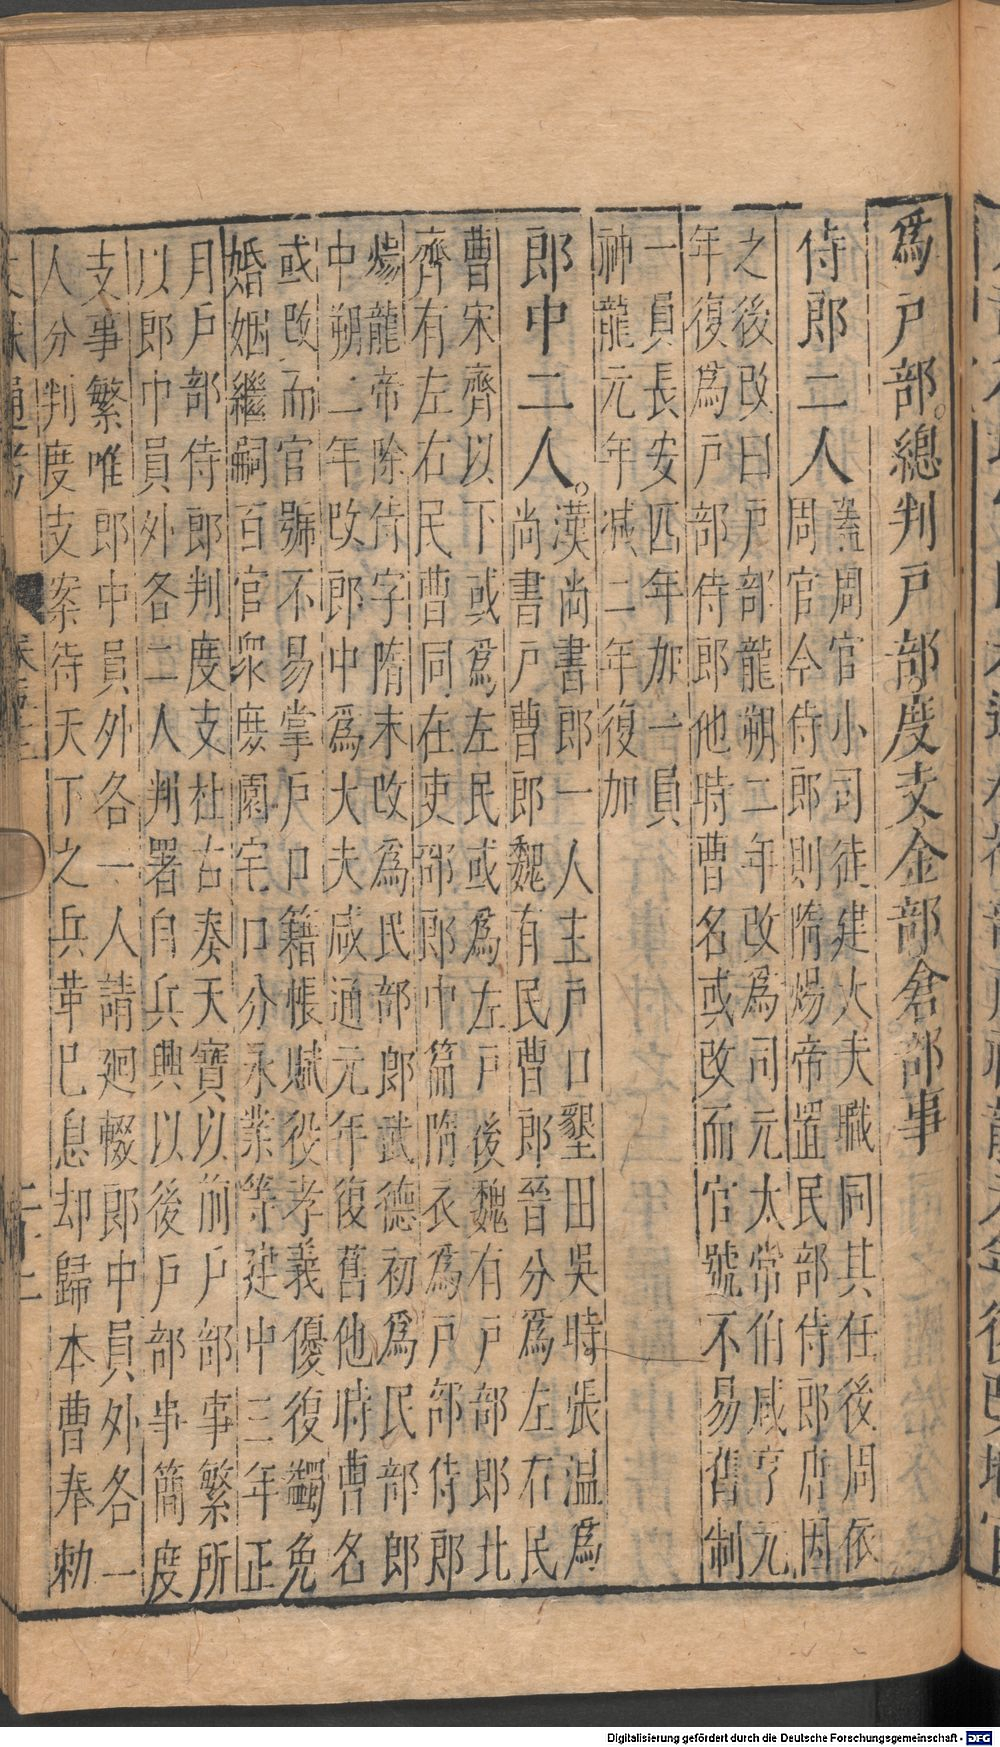 爲户部。總判户部度支金部倉部事
侍郎二人
蓋周官小司徒建大夫職同其任後周依
周官今侍郎則隋煬帝置民部侍郎唐因
之後改曰户部龍朔二年改爲司元太常伯咸亨元
年復爲户部侍郎他時曹名或改而官號不易舊制
一員長安四年加一員
神龍元年減二年復加
郎中二人。
漢尚書郎一人主户口墾田吳時張温爲
尚書户曹郎魏有民曹郎晉分爲左右民
曹宋齊以下或爲左民或爲左户後魏有户部郎北
齊有左右民曹同在吏部郎中篇隋初爲户部侍郎
煬帝除侍字隋末改爲民部郎武德初爲民部郎
中朔二年改郎中爲大夫咸通元年復舊他時曹名
或改而官號不易掌户口籍帳賦役孝義優復蠲免
婚姻繼嗣百官衆庶園宅口分永業等建中三年正
月户部侍郎判度支杜右奏天寶以前户部事繁所
以郎中員外各二人判署自兵興以後户部事簡度
支事繁唯郎中員外各一人請廻輟郎中員外各一
人分判度支案待天下之兵革已息却歸本曹奉勅
Digitalisierung gefördert durch die Deutsche Forschungsgemeinschaft - DFG